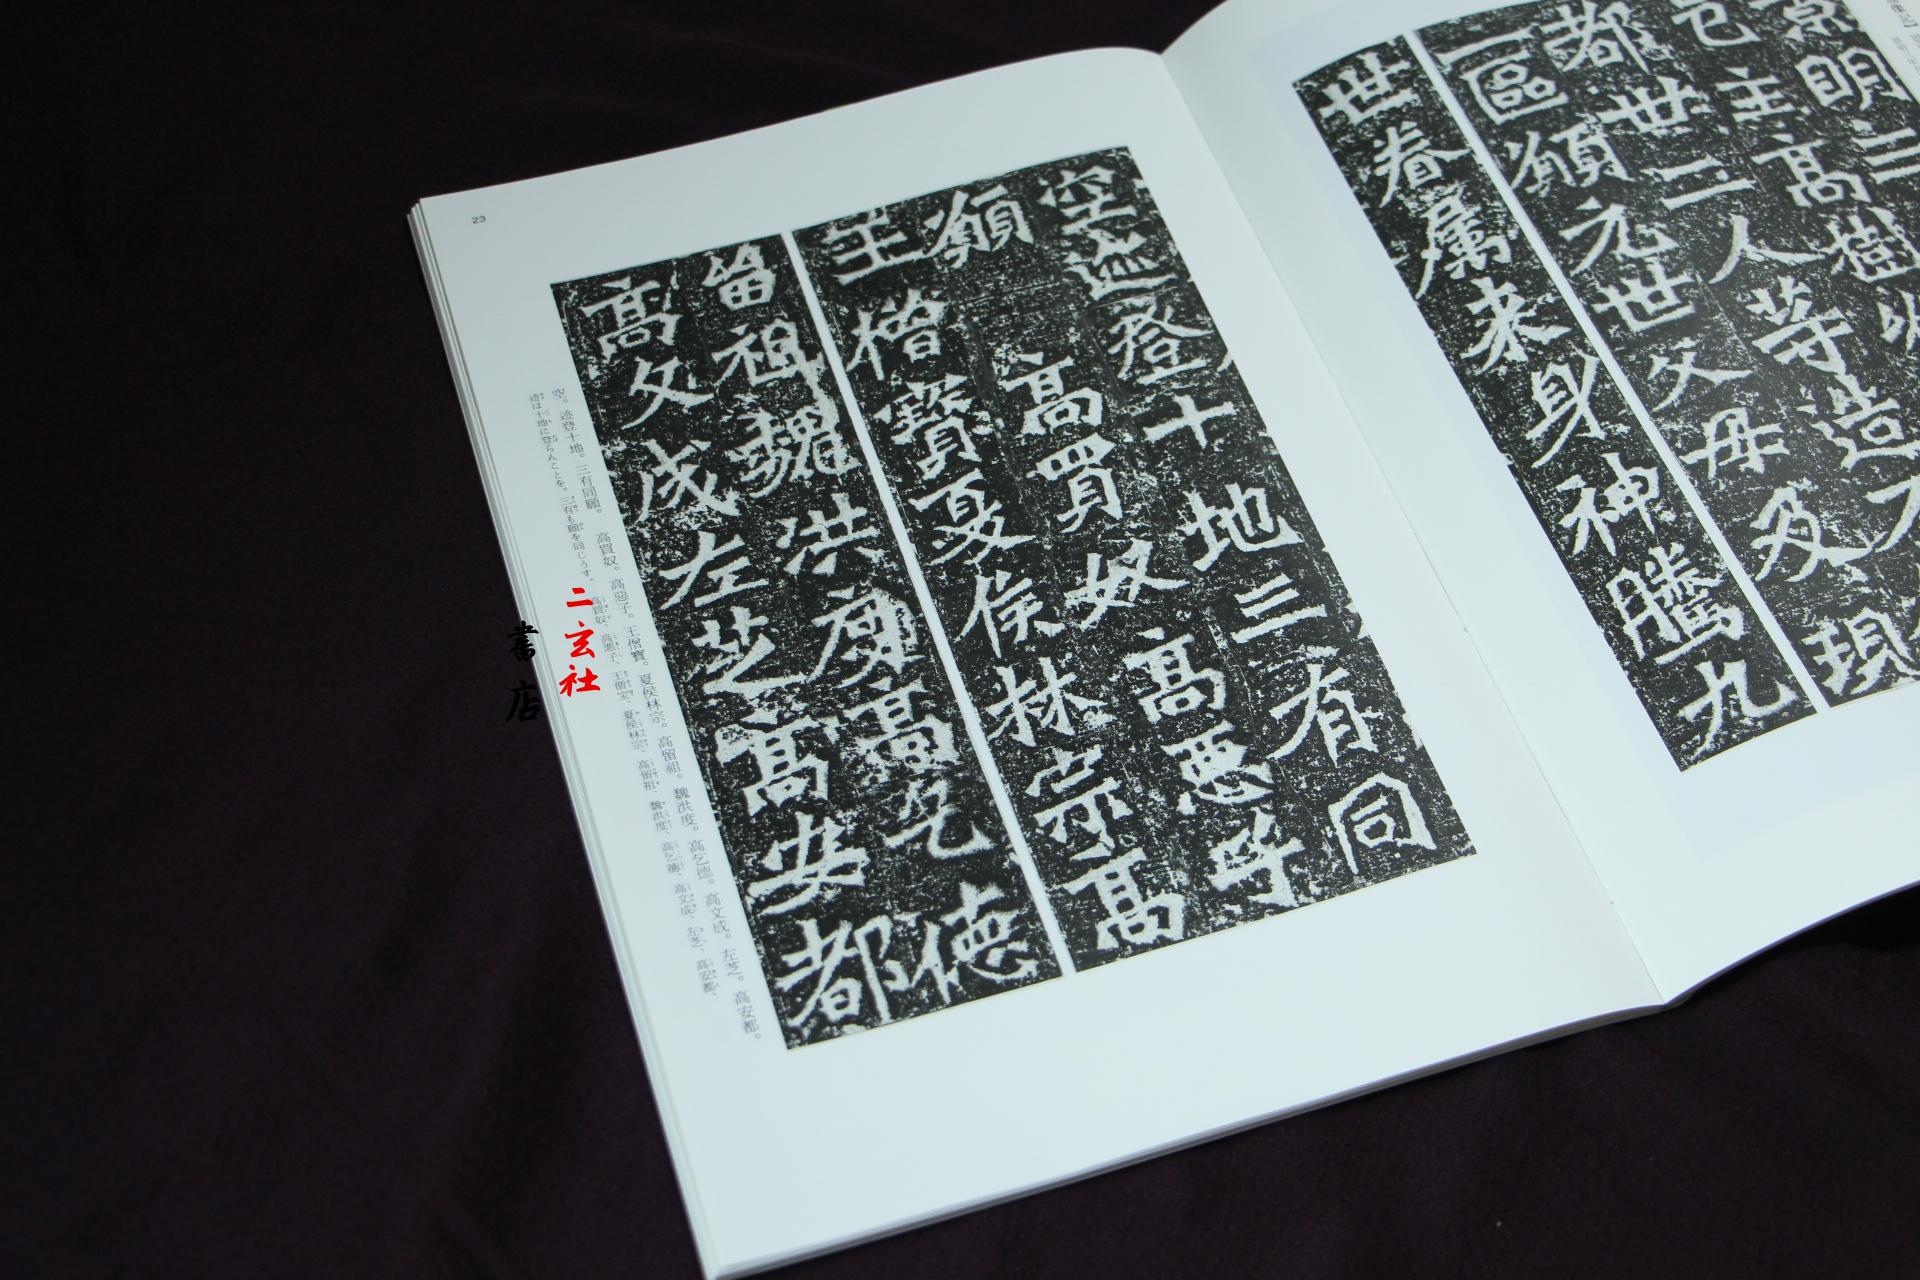 明三
邑主高樹
都世二人等造
一區願元世父母及現
世眷属来身神騰九
空迹登十地三有同
願 高買奴高惡子
王僧寶夏侯林宗高
留祖魏洪度高乞德
高文成左芝高安都
空。迹登十地。三有同願。 高買奴。高惡子。王僧寶。夏侯林宗。高留祖。魏洪度。高乞德。高文成。左芝。高安都。
迹は十地に登らんことを。三有も願を同じうす。 高買奴、高悪子、王僧宝、夏侯林宗、高留祖、魏洪度、高乞徳、高文成、左芝、高安都、
23
二玄社
書店